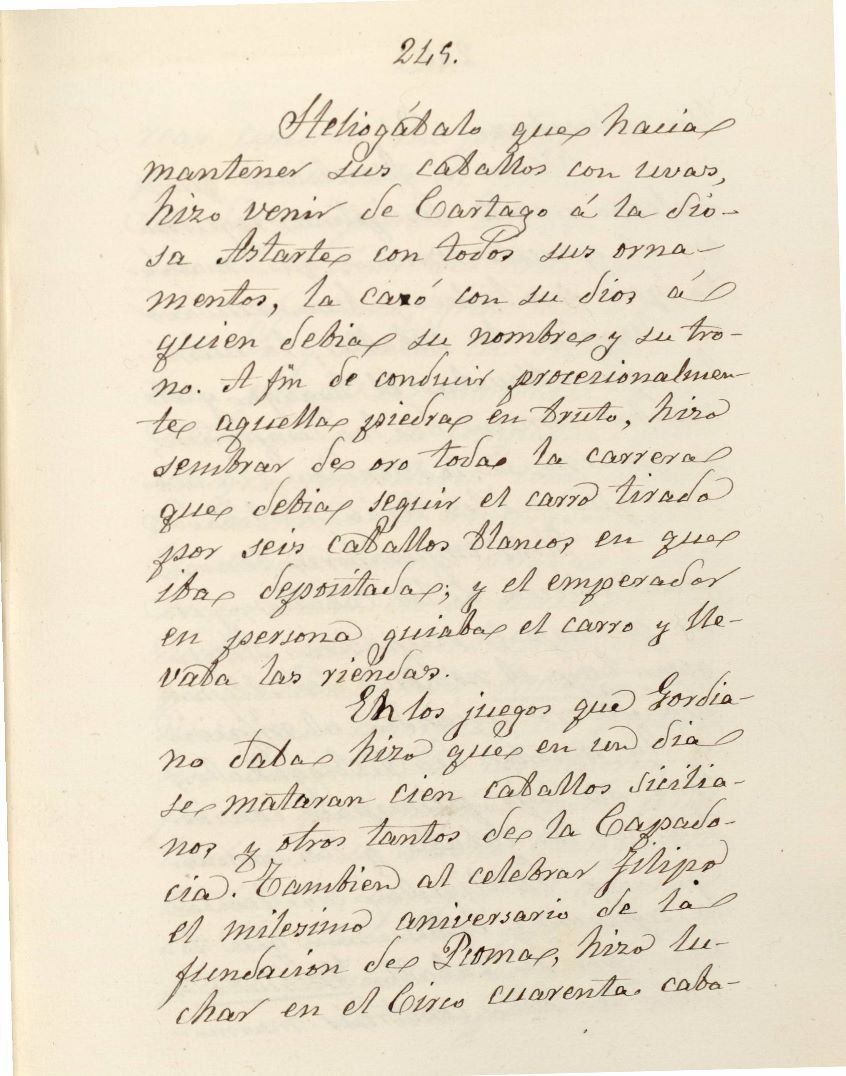 245.
Heliogábalo que hacia
mantener sus caballos con uvas,
hizo venir de Cartago á la dio-
sa Astarte con todos sus orna-
mentos, la casó con su dios á
quien debia su nombre y su tro-
no. A fin de conducir procesionalmen-
te aquella piedra en bruto, hizo
sembrar de oro toda la carrera
que debia seguir el carro tirado
por seis caballos blancos en que
iba depositada; y el emperador
en persona guiaba el carro y lle-
vaba las riendas.
En los juegos que Gordia-
no daba hizo que en un dia
se mataran cien caballos sicilia-
nos y otros tantos de la Capado-
cia. Tambien al celebrar Filipo
el milesimo aniversario de la
fundacion de Roma, hizo lu-
char en el Circo cuarenta caba-